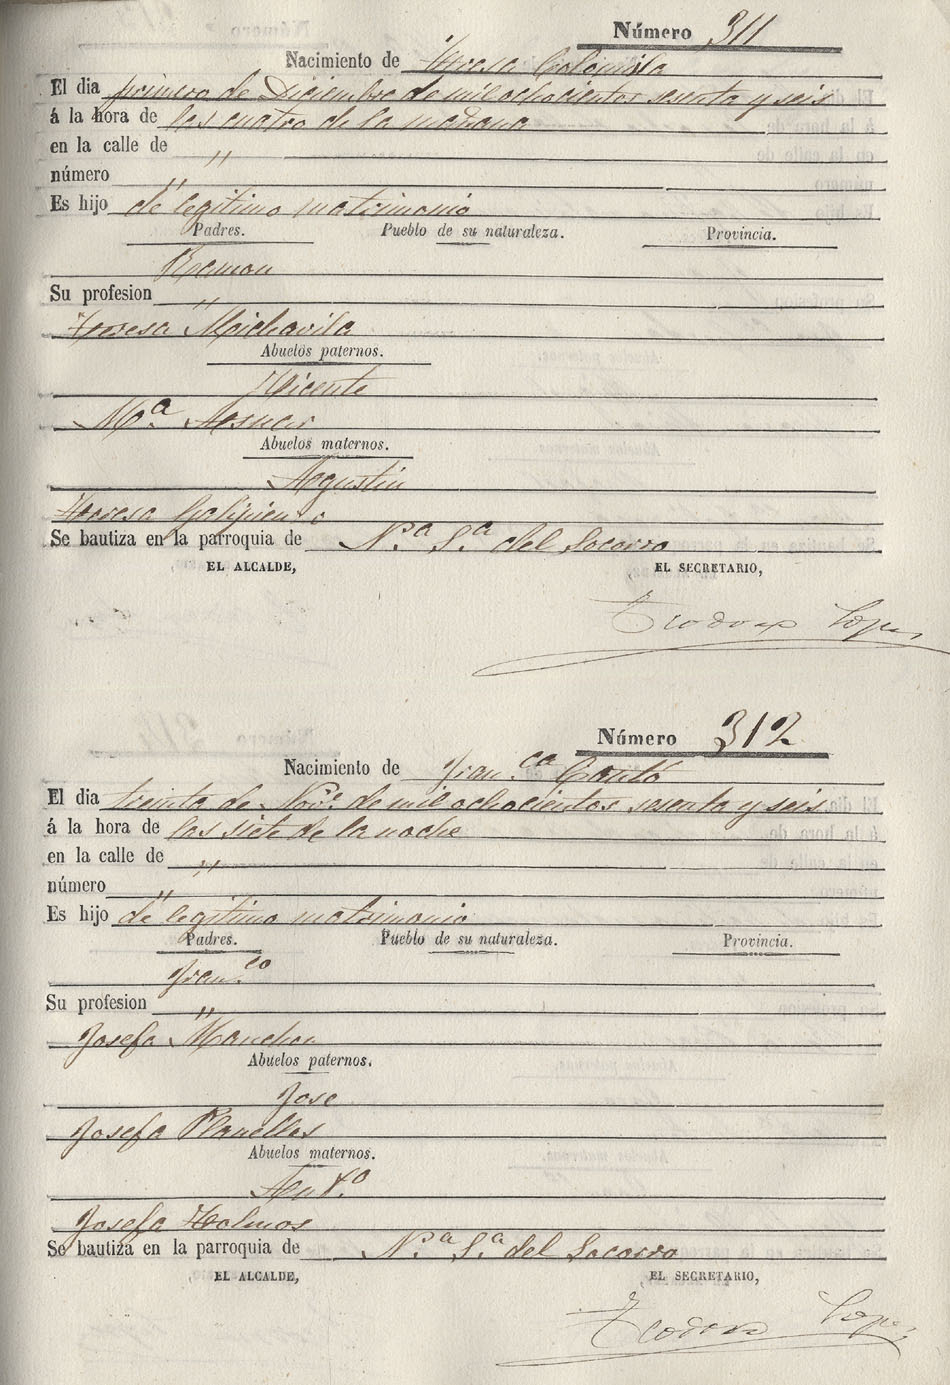 Número 311
Nacimiento de Teresa Colomila
El dia primero de Diciembre de mil ochocientos sesenta y seis
á la hora de las cuatro de la mañana
en la calle de "
número "
Es hijo de legitimo matrimonio
Padres. Pueblo de su naturaleza. Provincia.
Ramon
Su profesion "
Teresa Michavila
Abuelos paternos.
Vicente
Mª Asucar
Abuelos maternos.
Agustin
Teresa
Se bautiza en la parroquia de N.ª S.ª del Socorro
EL ALCALDE, EL SECRETARIO,
Teodoro Lopez
Número 312
Nacimiento de Fran.ca Cantó
El dia treinta de Nov.e de mil ochocientos sesenta y seis
á la hora de las siete de la noche
en la calle de "
número "
Es hijo de legitimo matrimonio
Padres. Pueblo de su naturaleza. Provincia.
Fran.co
Su profesion "
Josefa Manchon
Abuelos paternos.
Jose
Josefa Planelles
Abuelos maternos.
Ant.o
Josefa Holmos
Se bautiza en la parroquia de N.ª S.ª del Socorro
EL ALCALDE, EL SECRETARIO,
Teodoro Lopez